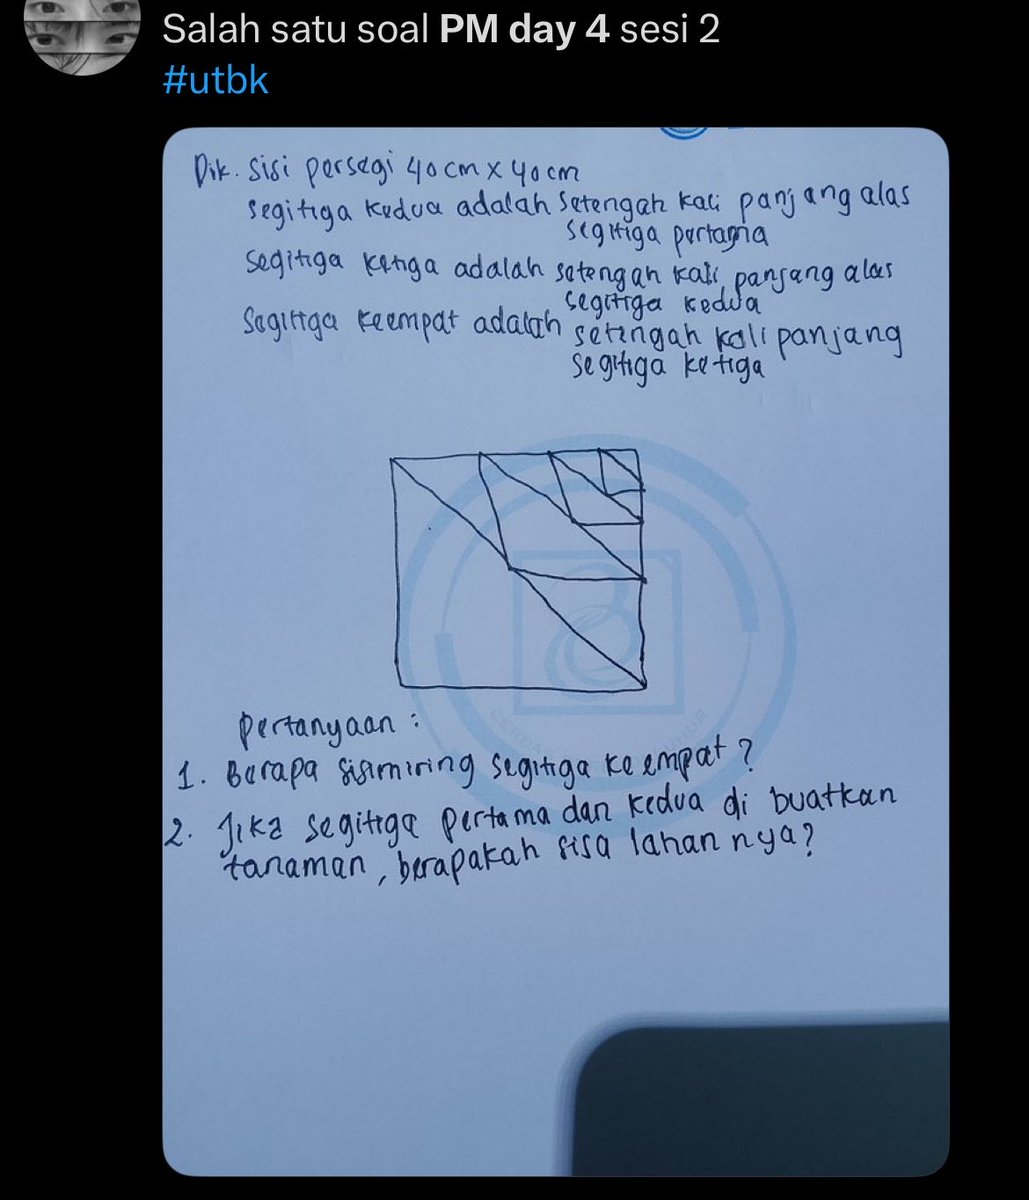 Salah satu soal PM day 4 sesi 2
#utbk
Dik. Sisi persegi 40 cm x 40 cm
segitiga kedua adalah setengah kali panjang alas
segitiga pertama
segitiga ketiga adalah setengah kali panjang alas
segitiga kedua
Segitiga keempat adalah setengah kali panjang
segitiga ketiga
Pertanyaan :
1. Berapa sisi miring segitiga keempat?
2. Jika segitiga pertama dan kedua di buatkan
tanaman, berapakah sisa lahan nya?